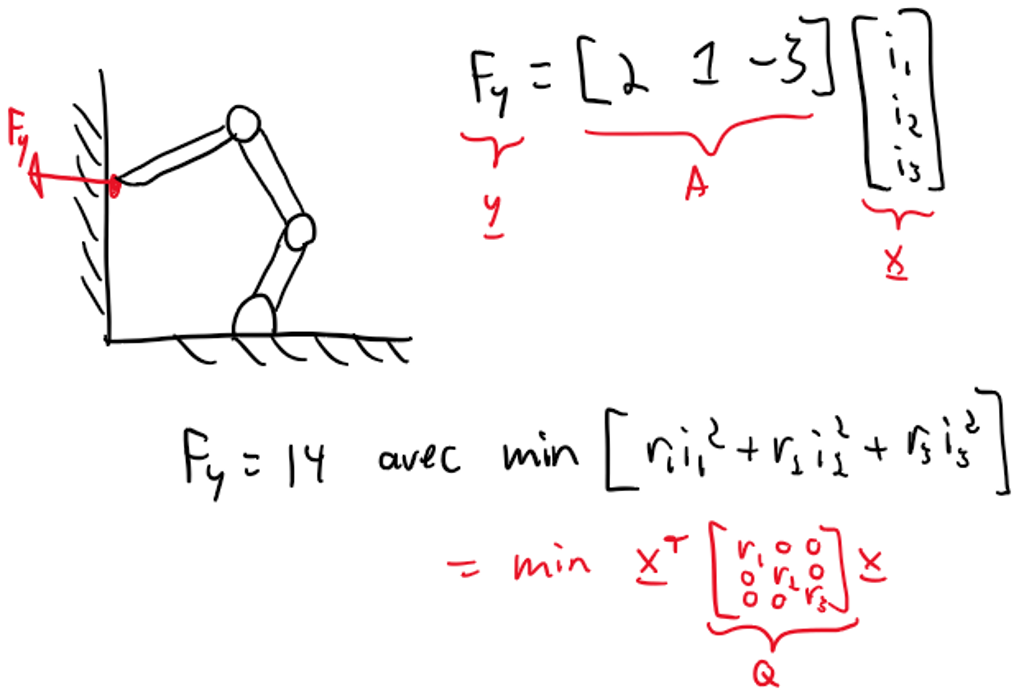 F_y = [2 1 -3] [i_1 i_2 i_3]
y A x
F_y
F_y = 14 avec min [r_1 i_1^2 + r_2 i_2^2 + r_3 i_3^2]
= min x^T [r_1 0 0
0 r_2 0
0 0 r_3] x
Q